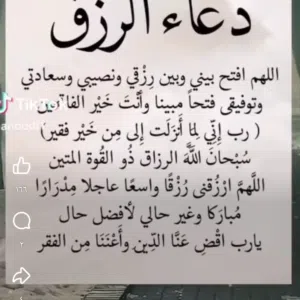 دعاء الرزق
اللهم افتح بيني وبين رزقي ونصيبي وسعادتي
وتوفيقي فتحاً مبينا وأنت خير
( رب إنّي لما أنزلت إلى من خير فقير )
سبحان الله الرزاق ذو القوة المتين
اللهم ارزقني رزقا واسعا عاجلا مدرارا
مباركا وغير حالي لأفضل حال
يارب اقض عنّا الدين وأغننا من الفقر
TikTok